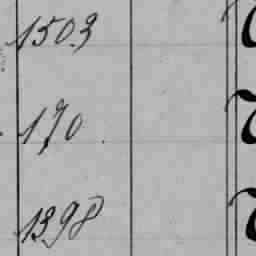 1503
170.
1398